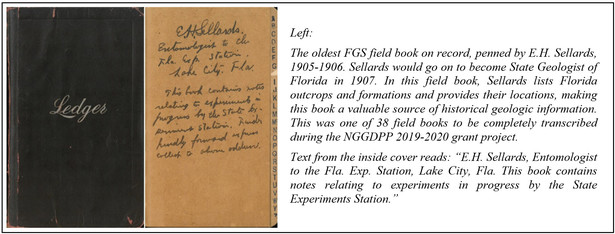 Ledger
E.H. Sellards.
Entomologist to the
Fla. Exp. Station,
Lake City, Fla.
This book contains notes
relating to experiments in
progress by the State Ex-
periment Station. Finder
kindly forward express
collect to above address.
A
B
C
D
E
F
G
I
J
K
L
M
N
O
P
Q
R
S
T
U
V
W
Y
Left:
The oldest FGS field book on record, penned by E.H. Sellards,
1905-1906. Sellards would go on to become State Geologist of
Florida in 1907. In this field book, Sellards lists Florida
outcrops and formations and provides their locations, making
this book a valuable source of historical geologic information.
This was one of 38 field books to be completely transcribed
during the NGGDPP 2019-2020 grant project.
Text from the inside cover reads: “E.H. Sellards, Entomologist
to the Fla. Exp. Station, Lake City, Fla. This book contains
notes relating to experiments in progress by the State
Experiments Station.”